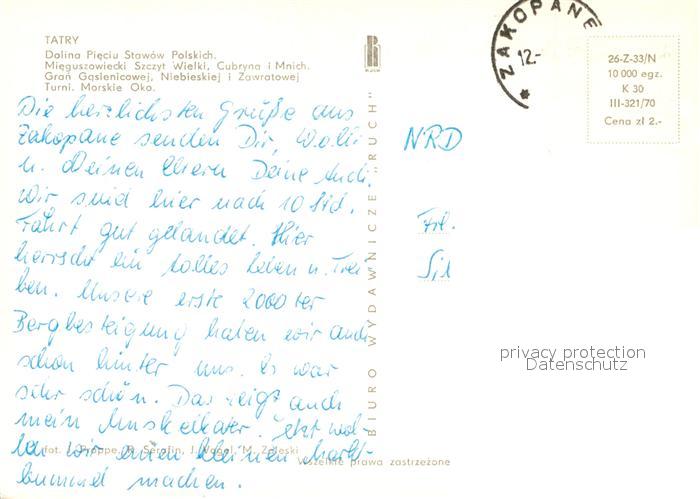 TATRY
Dolina Pięciu Stawów Polskich.
Mięguszowiecki Szczyt Wielki, Cubryna i Mnich.
Grań Gąsienicowej, Niebieskiej i Zawratowej
Turni. Morskie Oko.
Die herzlichsten Grüße aus
Zakopane senden Dir, Wolli
u. Deinen Eltern Deine Andi.
Wir sind hier nach 10 Std.
Fahrt gut gelandet. Hier
herrscht ein tolles Leben u. Trei
ben. Unsere erste 2000ter
Bergbesteigung haben wir auch
schon hinter uns. Es war
sehr schön. Das zeigt auch
mein Muskelkater. Jetzt wol-
len wir einen kleinen Markt-
bummel machen.
fot. J. Serafin, J. M.
Wszelkie prawa zastrzeżone
RUCH
BIURO WYDAWNICZE „RUCH"
ZAKOPANE
12.-
26-Z-33/N
10 000 egz.
K 30
III-321/70
Cena zł 2.-
NRD
Frl.
Sil
privacy protection
Datenschutz